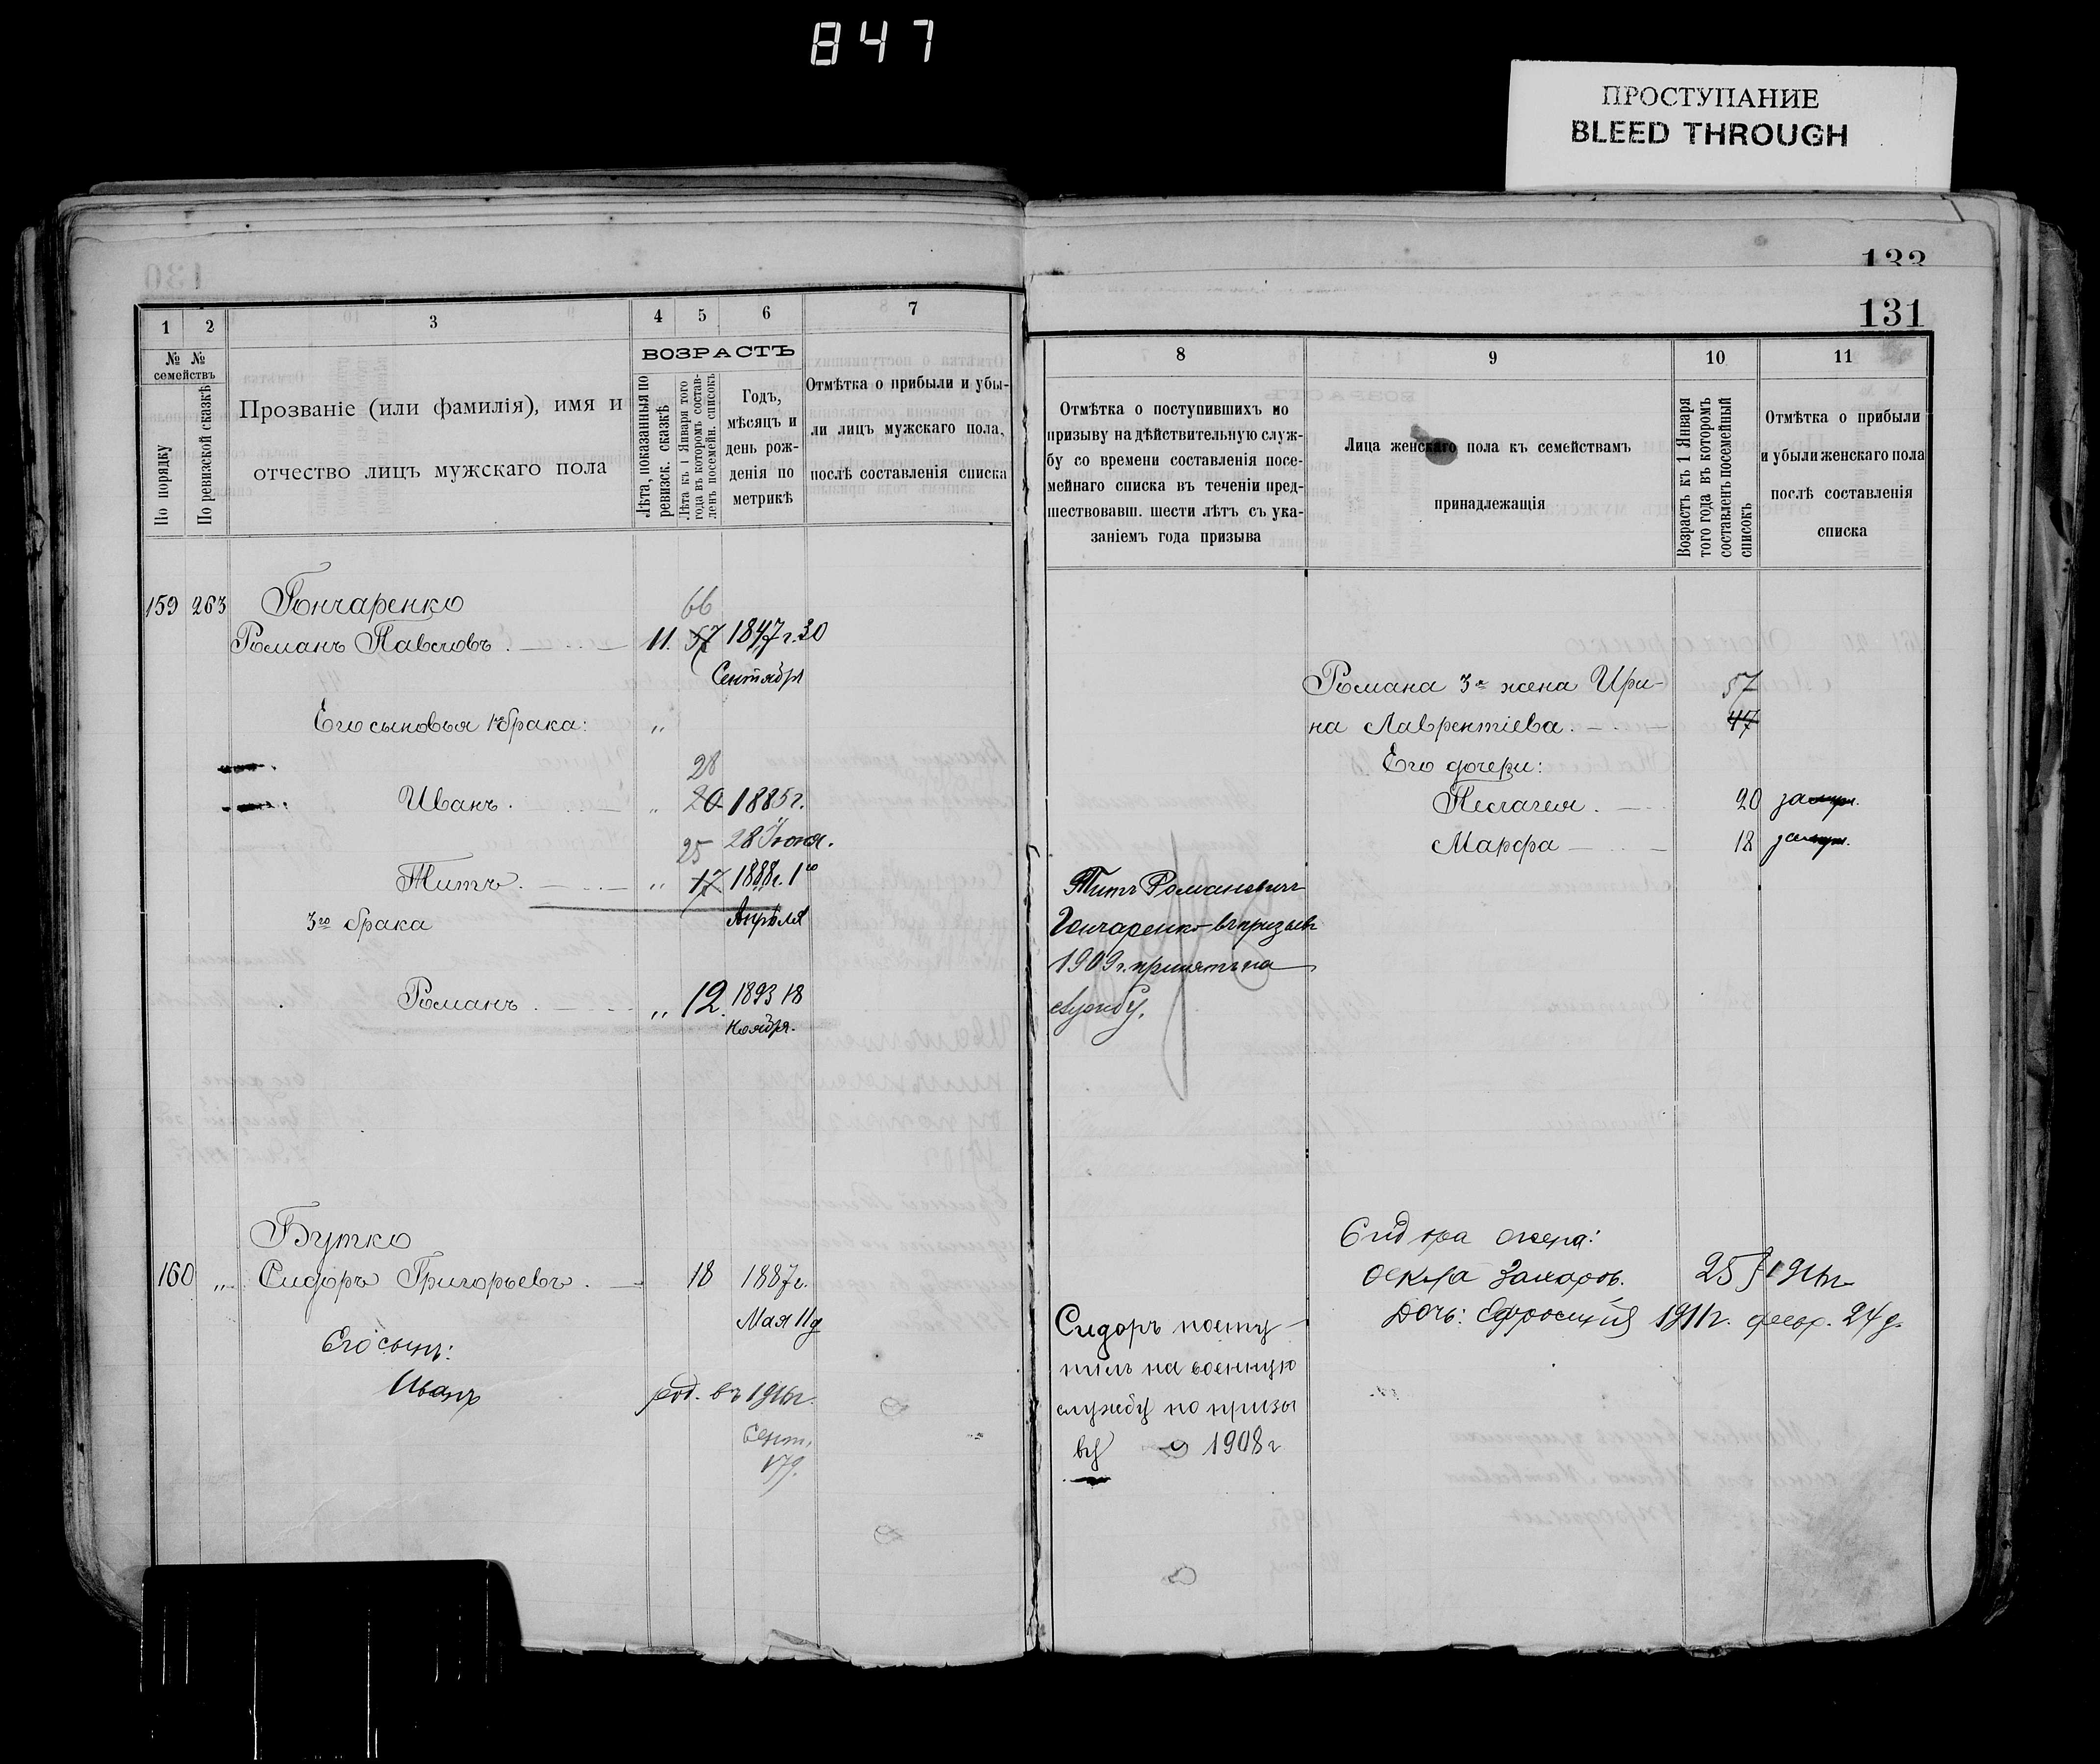 847
ПРОСТУПАНИЕ
BLEED THROUGH
133
131
1 2 3 4 5 6 7
№ № семействъ
По порядку
По ревизской сказкѣ
Прозваніе (или фамилія), имя и
отчество лицъ мужскаго пола
ВОЗРАСТЪ
Лѣта, показанныя по
ревизск. сказкѣ
Лѣта къ 1 Января того
года въ которомъ состав-
ленъ посемейн. списокъ
Годъ,
мѣсяцъ и
день рож-
денія по
метрикѣ
Отмѣтка о прибыли и убы-
ли лицъ мужскаго пола,
послѣ составленія списка
159 263 Гончаренко
66
Романъ Павловъ. 11. 57 1847 г. 30
Сентября
Его сыновья 1го брака: „
28
Иванъ. „ 20 1885 г.
28 Іюня.
25
Титъ. „ 17 1888 г. 1го
Апрѣля
3го брака
Романъ. „ 12. 1893 18
Ноября.
Бутко
160 „ Сидоръ Григорьевъ. 18 1887 г.
Мая 11 д
Его сынъ:
Иванъ род. въ 1916 г.
Сент.
17 д.
8 9 10 11
Отмѣтка о поступившихъ по
призыву на дѣйствительную служ-
бу со времени составленія посе-
мейнаго списка въ теченіи пред-
шествовавш. шести лѣтъ съ ука-
заніемъ года призыва
Лица женскаго пола къ семействамъ
принадлежащія
Возрастъ къ 1 Января
того года въ которомъ
составленъ посемейный
списокъ
Отмѣтка о прибыли
и убыли женскаго пола
послѣ составленія
списка
Романа 3я жена Ири- 57
на Лаврентіева. 47
Его дочери:
Пелагея. 20 замуж.
Марфа 18 замуж.
Титъ Романовичъ
Гончаренко въ призывъ
1909 г. принятъ на
службу.
Сидора жена:
Фекла Захаров. 25 1916 г
Дочь: Ефросинія 1911 г. февр. 24 д.
Сидоръ посту
пилъ на военную
службу по призы
ву 1908 г